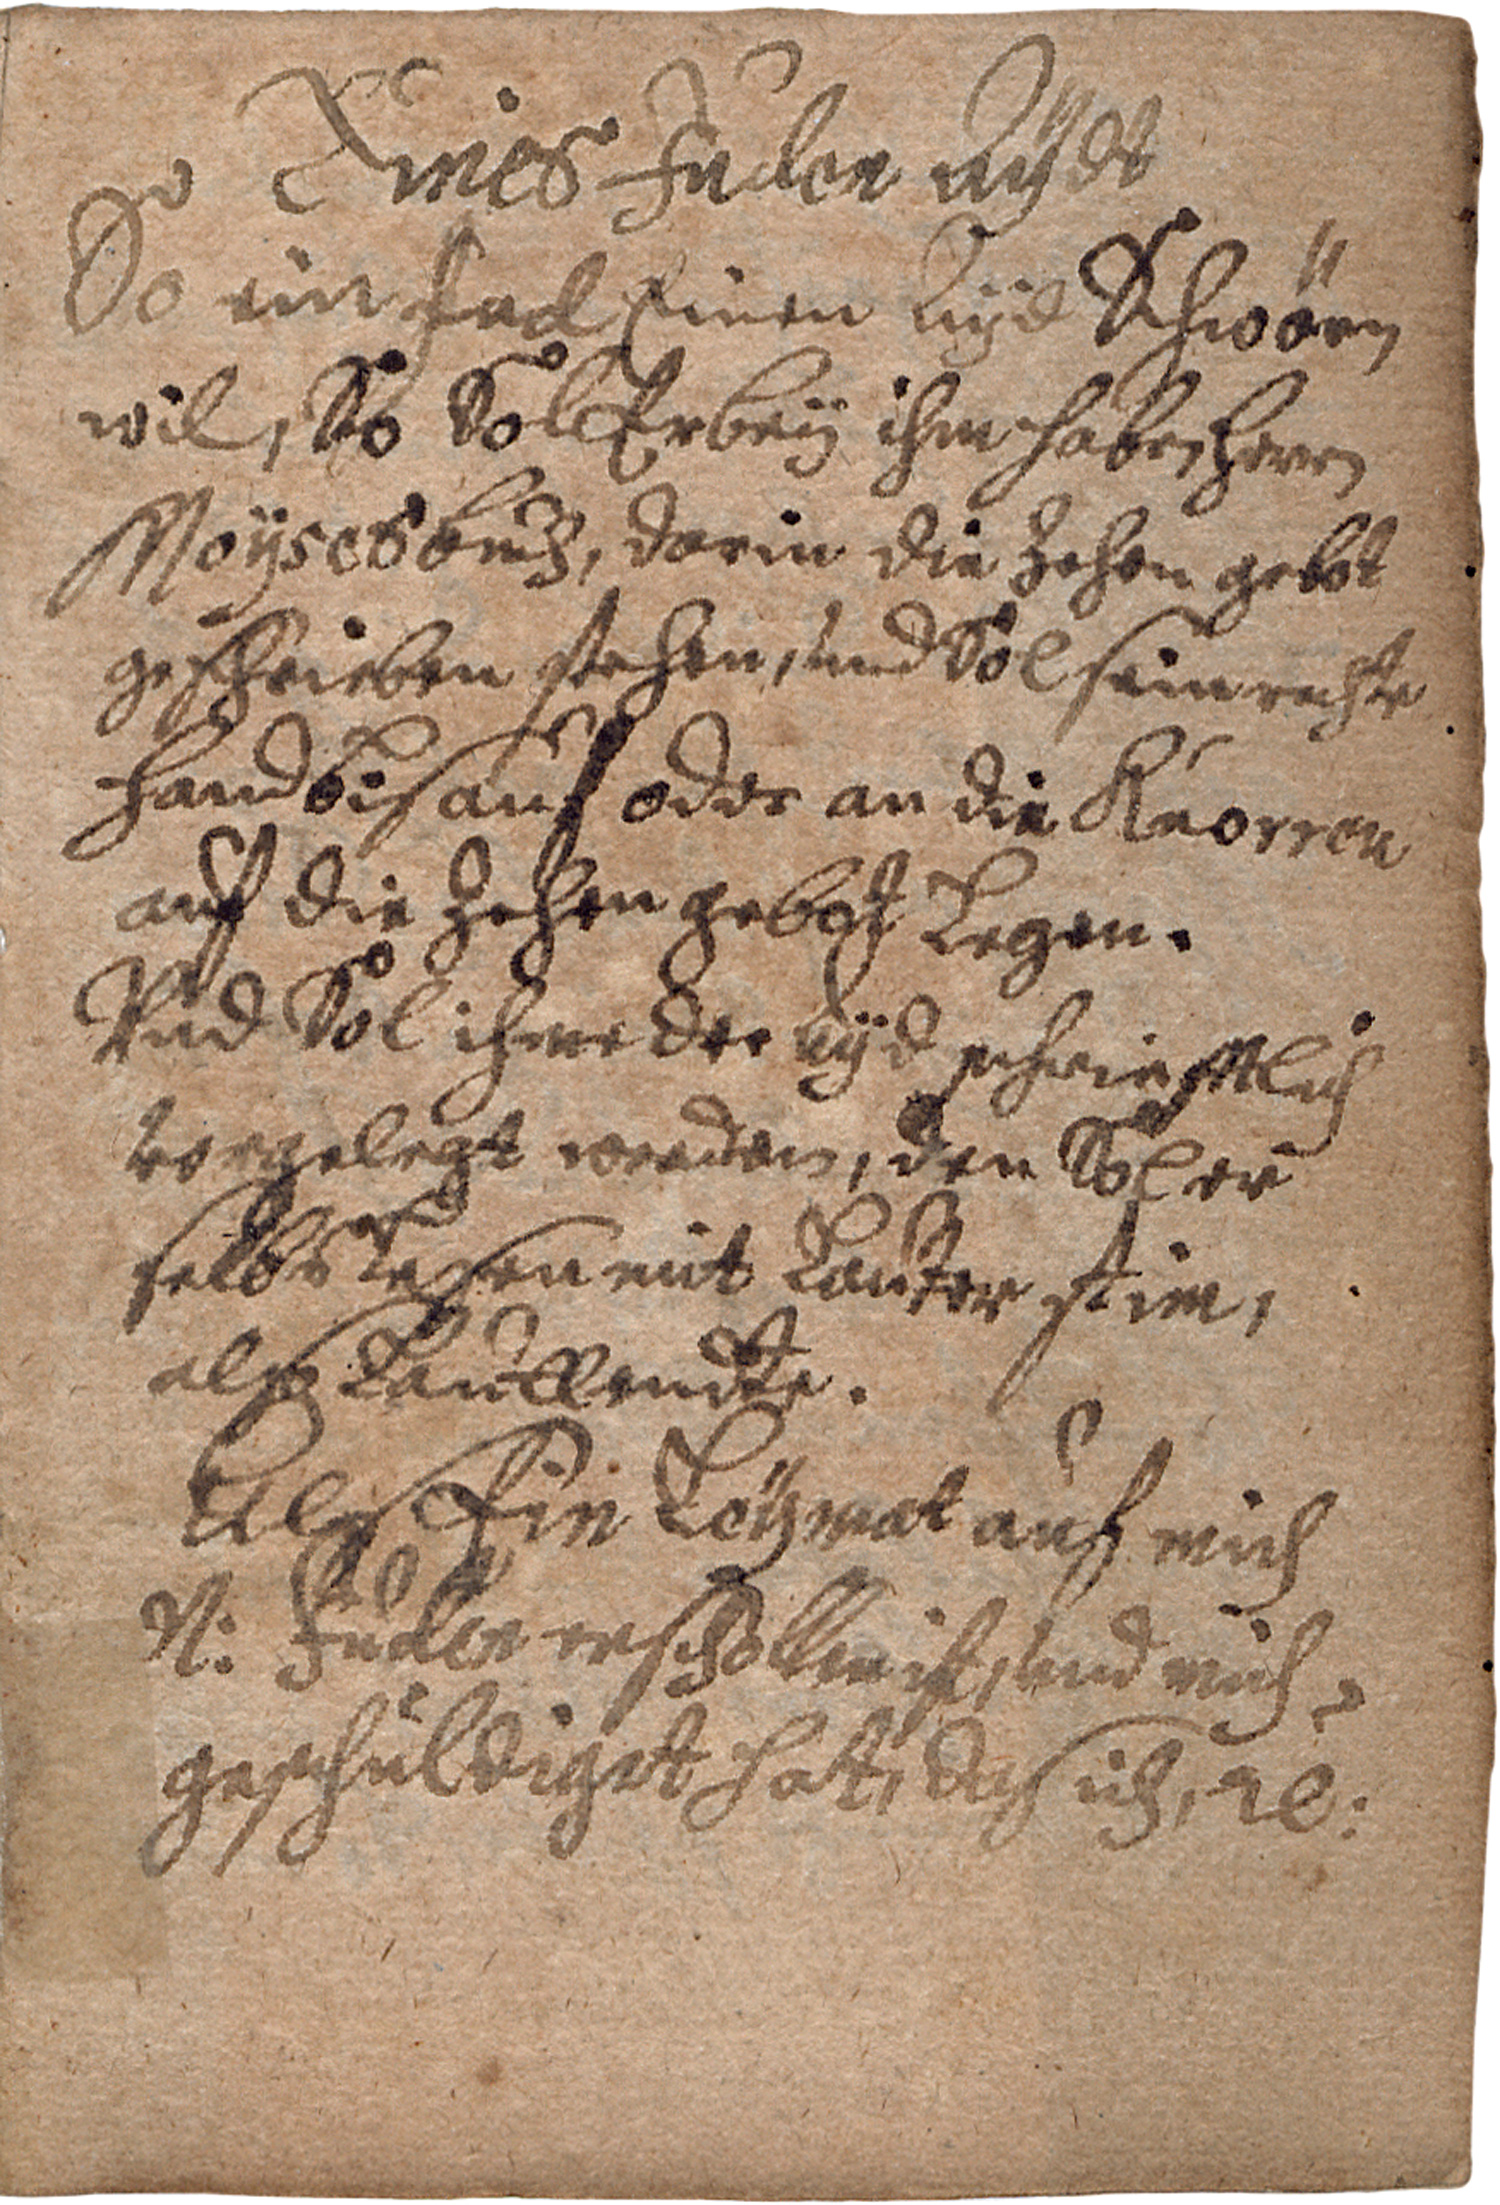 Eines Juden aÿdt
So ein Jud Einen aÿd Schwören
wil, So Sol Er beÿ ihm haben herren
Moÿses buch, darin die zehen gebot
geschrieben stehen, und Sol sein rechte
Hand bis auf oder an die Knorren
auf die zehen gebot Legen.
Und Sol ihme der aÿd schriefftlich
vorgelegt werden, den Sol er
selbst Lesen mit Lauter stim,
also Lautendte.
Als Ein auf mich
N: Juden erschollen ist, und mich
geschuldiget hat, das ich, ꝛc: